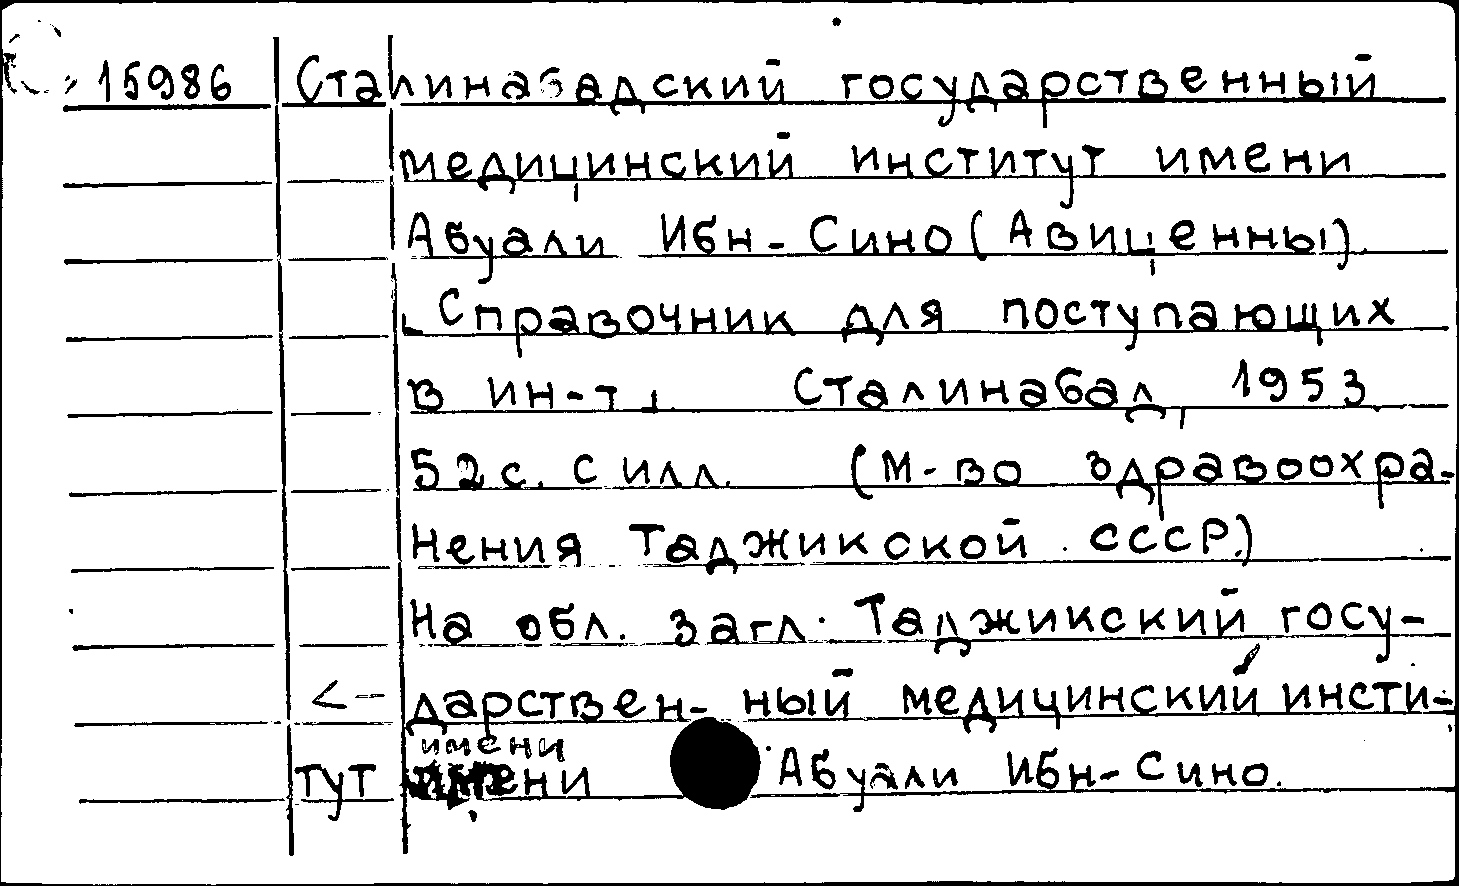 15986 Сталинабадский государственный
медицинский институт имени
Абуали Ибн-Сино (Авиценны).
Справочник для поступающих
в ин-т. Сталинабад, 1953
52 с. с илл. (М-во здравоохра-
нения Таджикской ССР.)
На обл. загл. Таджикский госу-
<-- дарствен- ный медицинский инсти-
имени
тут имени Абуали Ибн-Сино.